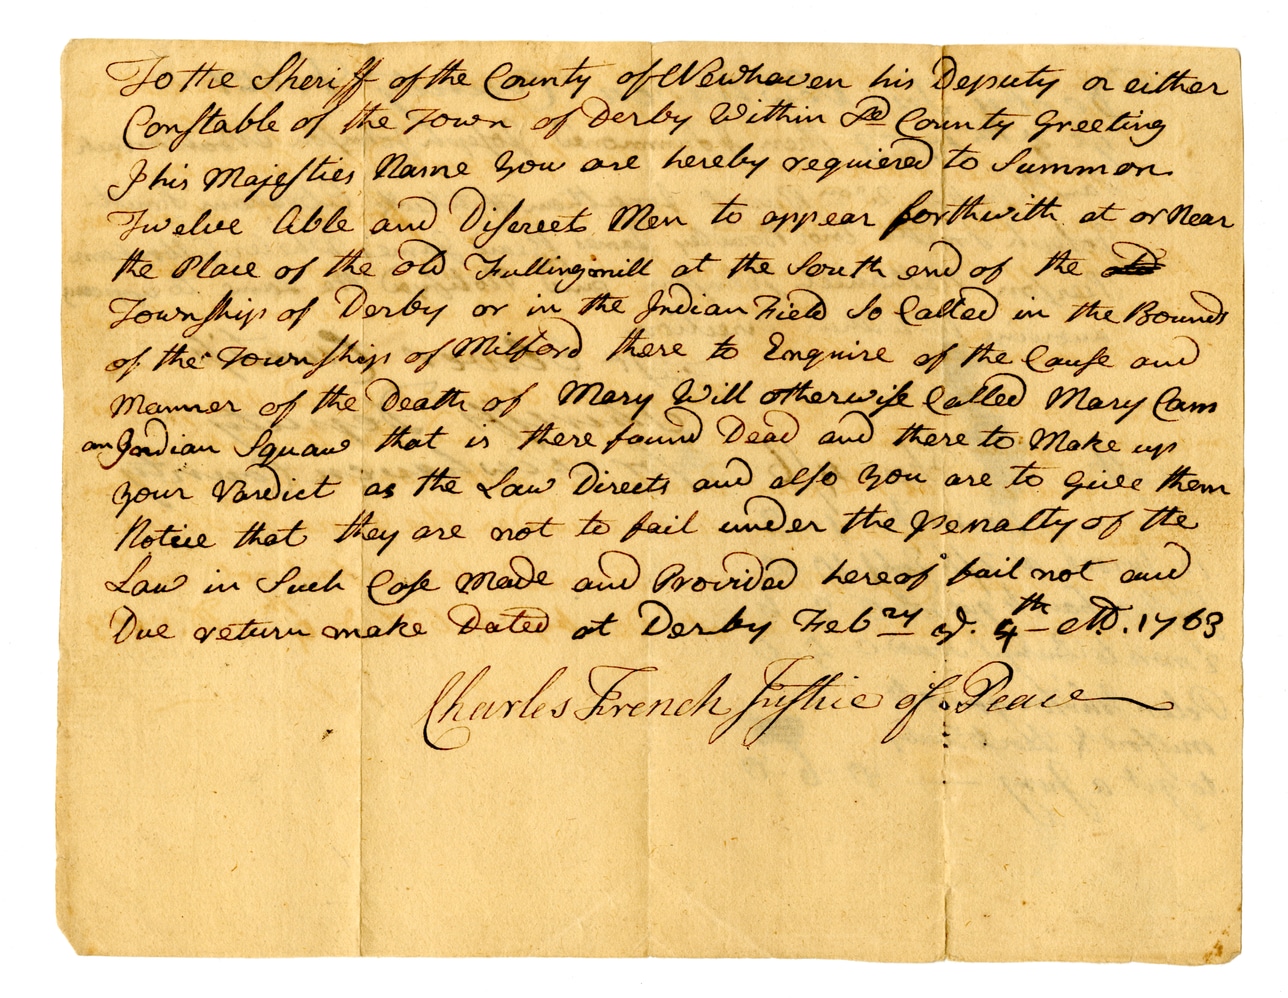 To the Sheriff of the County of Newhaven his Deputy or either
Constable of the Town of Derby Within Sd County Greeting
I his Majesties Name you are hereby requiered to Summon
Twelve Able and Discreet Men to appear forthwith at or Near
the Place of the old Fullingmill at the South end of the old
Township of Derby or in the Indian Field So Called in the Bounds
of the Township of Milford there to Enquire of the Cause and
Manner of the Death of Mary Will otherwise Called Mary Cam
an Indian Squaw that is there found Dead and there to Make up
your Vardict as the Law Directs and also you are to give them
Notice that they are not to fail under the Penalty of the
Law in Such Case Made and Provided hereof fail not and
Due return make Dated at Derby Febry ye. 4th AD. 1763
Charles French Justice of Peace